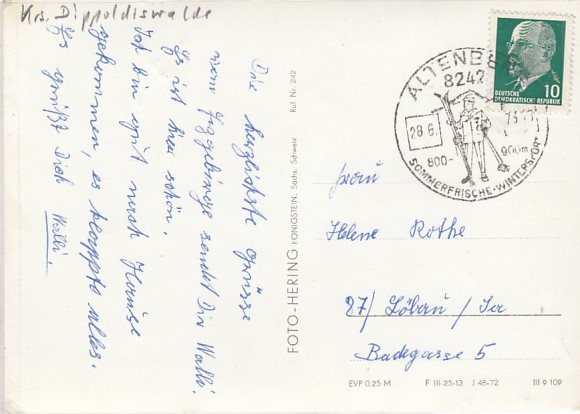 Krs. Dippoldiswalde
Die herzlichste Grüsse
vom Erzgebirge sendet Dir Walli.
Es ist hier schön.
Ich bin gut nach Hause
gekommen, es klappte alles.
Es grüßt Dich Walli.
FOTO-HERING KÖNIGSTEIN, Sächs. Schweiz Ruf Nr. 242
ALTENBERG
8242
28.6.
800-
900m
SOMMERFRISCHE·WINTERSPORT
DEUTSCHE
DEMOKRATISCHE REPUBLIK
10
Frau
Helene Rothe
87/ Löbau / Sa
Badegasse 5
EVP 0.25 M F III-25-13 J 48-72 III 9 109